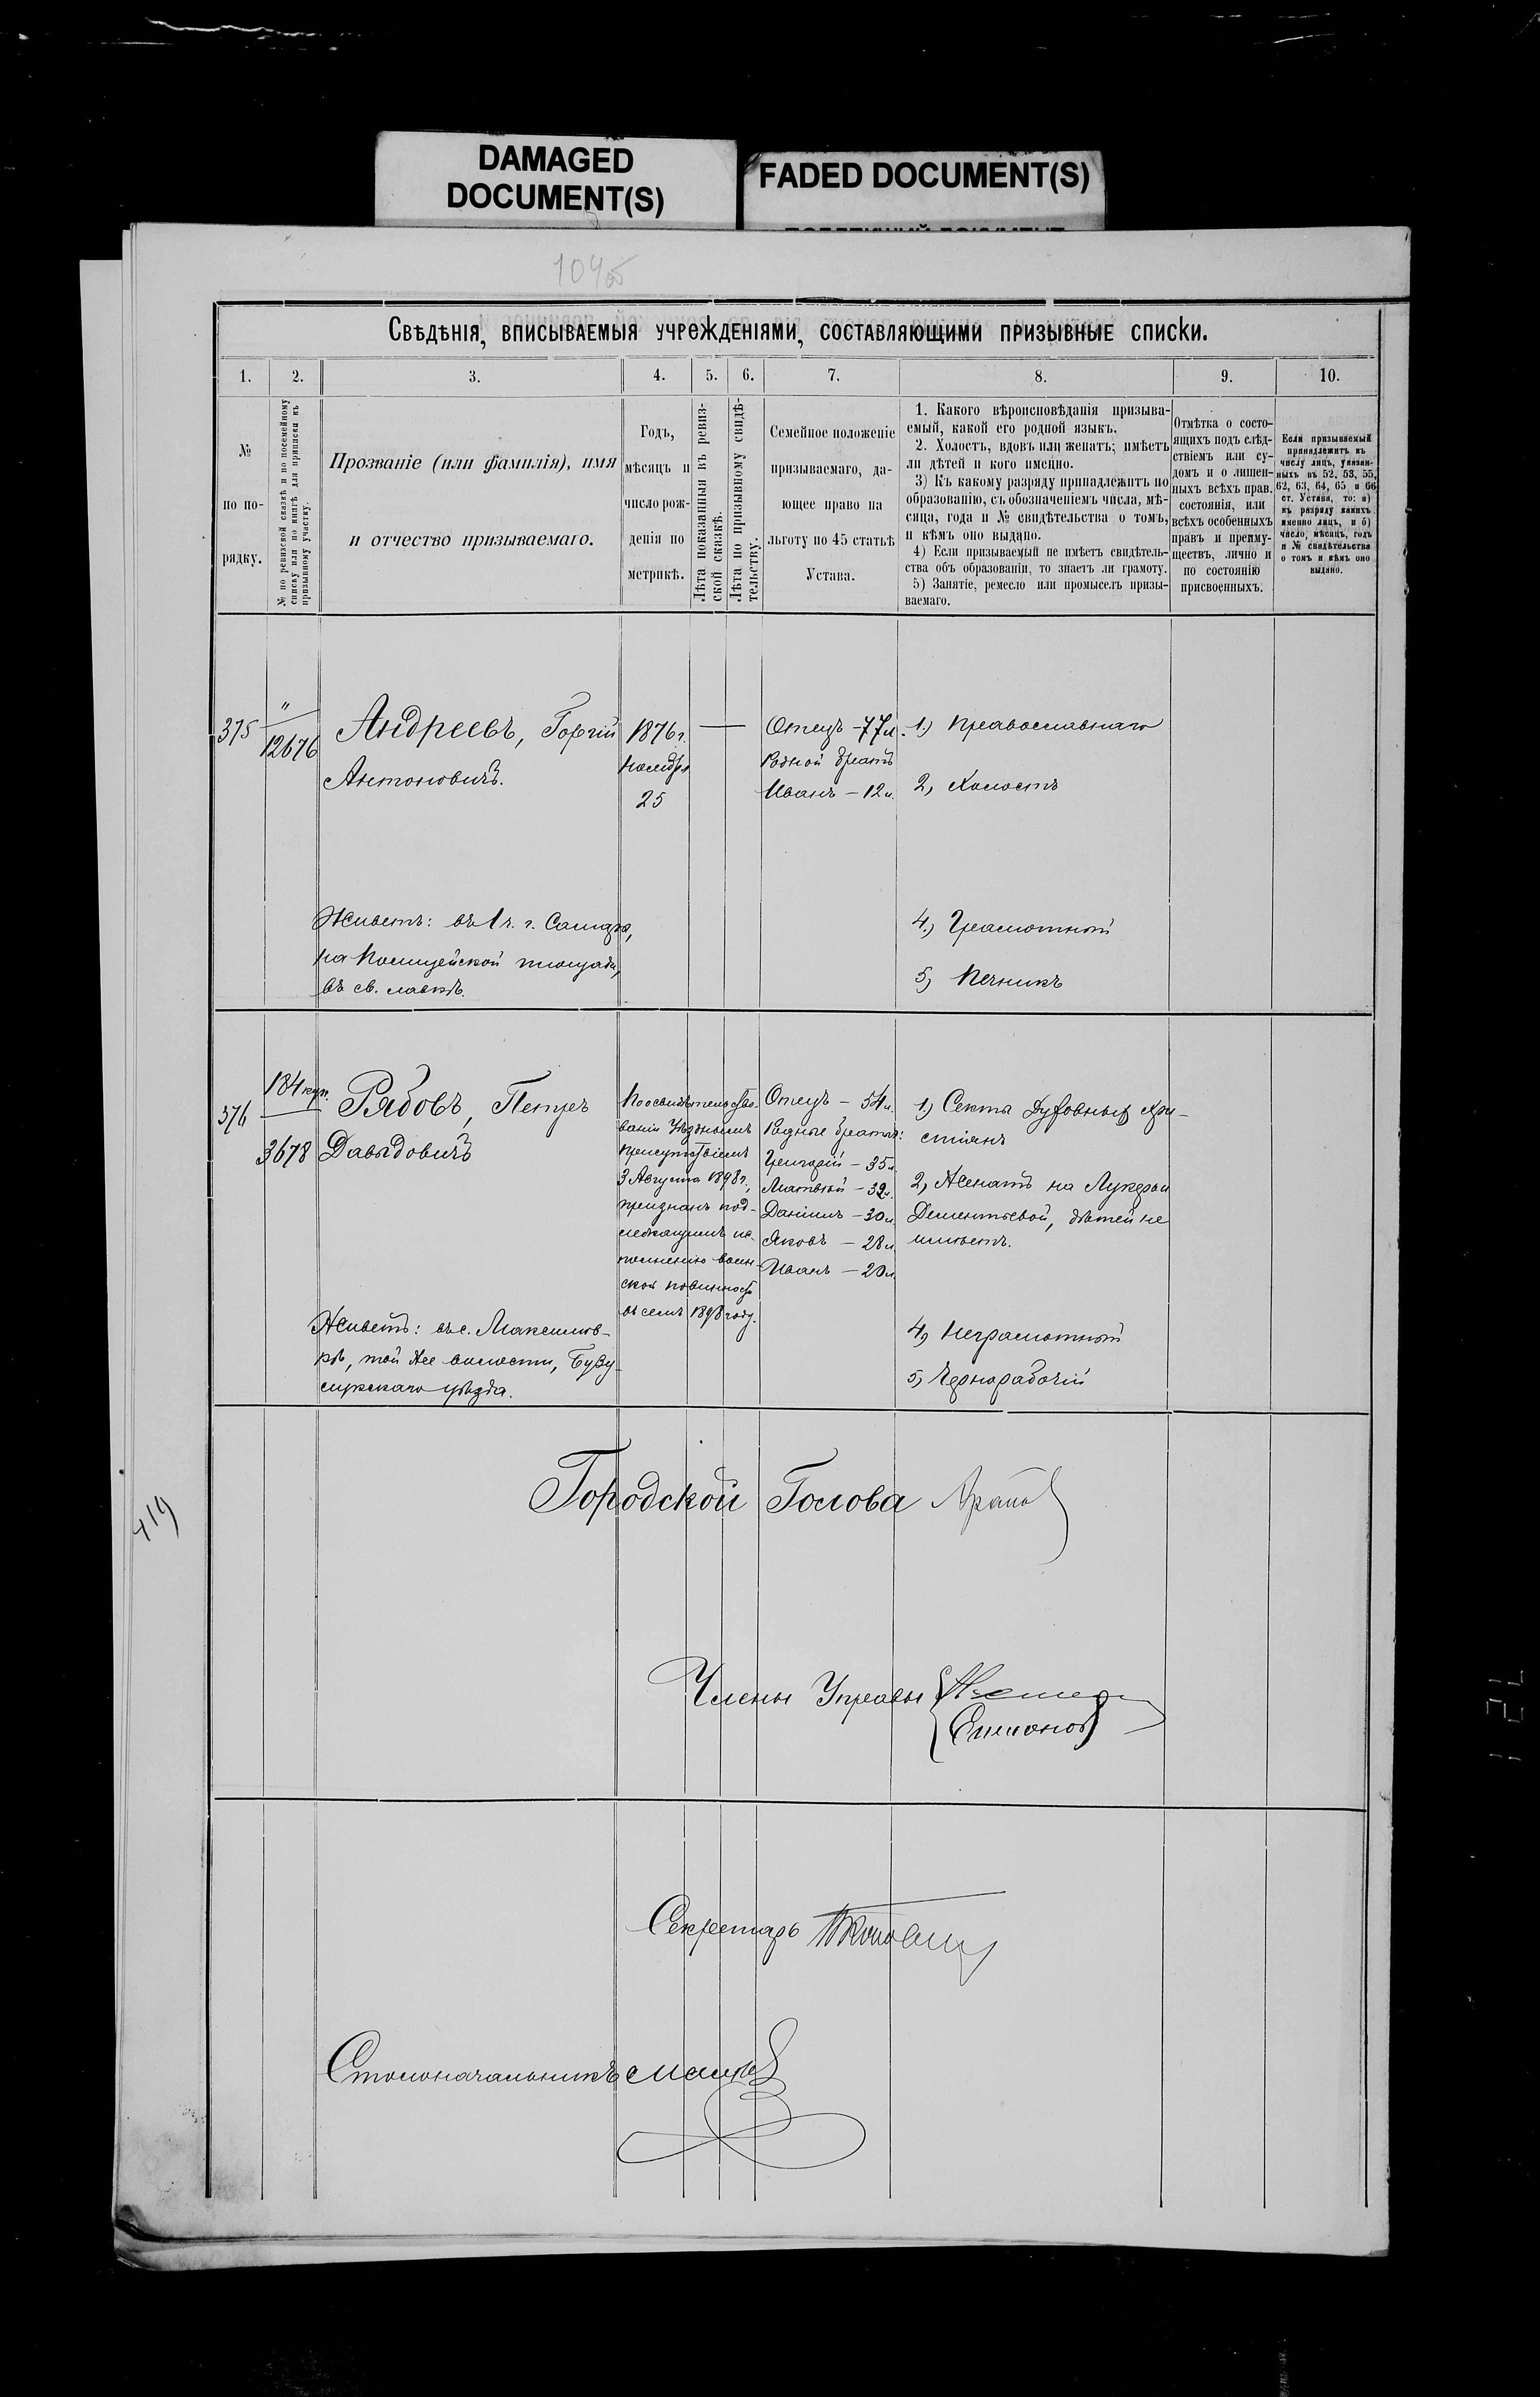 DAMAGED
DOCUMENT(S)
FADED DOCUMENT(S)
Свѣдѣнія, вписываемыя учрежденіями, составляющими призывные списки.
1. 2. 3. 4. 5. 6. 7. 8. 9. 10.
№
по по-
рядку.
№ по ревизской сказкѣ и по посемейному
списку или по книгѣ для приписки къ
призывному участку.
Прозваніе (или фамилія), имя
и отчество призываемаго.
Годъ,
мѣсяцъ и
число рож-
денія по
метрикѣ.
Лѣта показанныя въ ревиз-
ской сказкѣ.
Лѣта по призывному свидѣ-
тельству.
Семейное положеніе
призываемаго, да-
ющее право на
льготу по 45 статьѣ
Устава.
1. Какого вѣроисповѣданія призыва-
емый, какой его родной языкъ.
2. Холостъ, вдовъ или женатъ; имѣетъ
ли дѣтей и кого именно.
3) Къ какому разряду принадлежитъ по
образованію, съ обозначеніемъ числа, мѣ-
сяца, года и № свидѣтельства о томъ,
и кѣмъ оно выдано.
4) Если призываемый не имѣетъ свидѣтель-
ства объ образованіи, то знаетъ ли грамоту.
5) Занятіе, ремесло или промыселъ призы-
ваемаго.
Отмѣтка о состо-
ящихъ подъ слѣд-
ствіемъ или су-
домъ и о лишен-
ныхъ всѣхъ прав.
состоянія, или
всѣхъ особенныхъ
правъ и преиму-
ществъ, лично и
по состоянію
присвоенныхъ.
Если призываемый
принадлежитъ къ
числу лицъ, указан-
ныхъ въ 52, 53, 55,
62, 63, 64, 65 и 66
ст. Устава, то: а)
къ разряду какихъ
именно лицъ, и б)
число, мѣсяцъ, годъ
и № свидѣтельства
о томъ и кѣмъ оно
выдано.
375
"
12676
Андреевъ, Горгій
Антоновичъ.
1876 г.
Ноября
25
Отецъ - 77 л.
Родной братъ
Иванъ - 12 л.
1) Православнаго
2, Холостъ
4.) Грамотный
5, Печникъ
Живетъ: въ 1 ч. г. Самары,
на Полицейской площади,
въ св. лавкѣ.
376
184 куп.
3678
Рябовъ, Петръ
Давыдовичъ
По освидѣтельство-
ваніи Уѣзднымъ
присутствіемъ
3 Августа 1898 г.,
признанъ под-
лежащимъ ис-
полненію воин-
ской повинности
въ семъ 1898 году.
Отецъ - 54 л.
Родные братья:
Григорій - 35 л.
Матвѣй - 32 л.
Даніилъ - 30 л.
Яковъ - 28 л.
Иванъ - 20 л.
1) Секты Духовныхъ Хри-
стіянъ
2, Женатъ на Лукерьи
Дементьевой, дѣтей не
имѣетъ.
4, Неграмотный
5, Чернорабочій
Живетъ: въ с. Максимов-
кѣ, той же волости, Бузу-
лукскаго уѣзда.
419
Городской Голова Арапов
Члены Управы
Симонов
Секретарь
Столоначальникъ
121